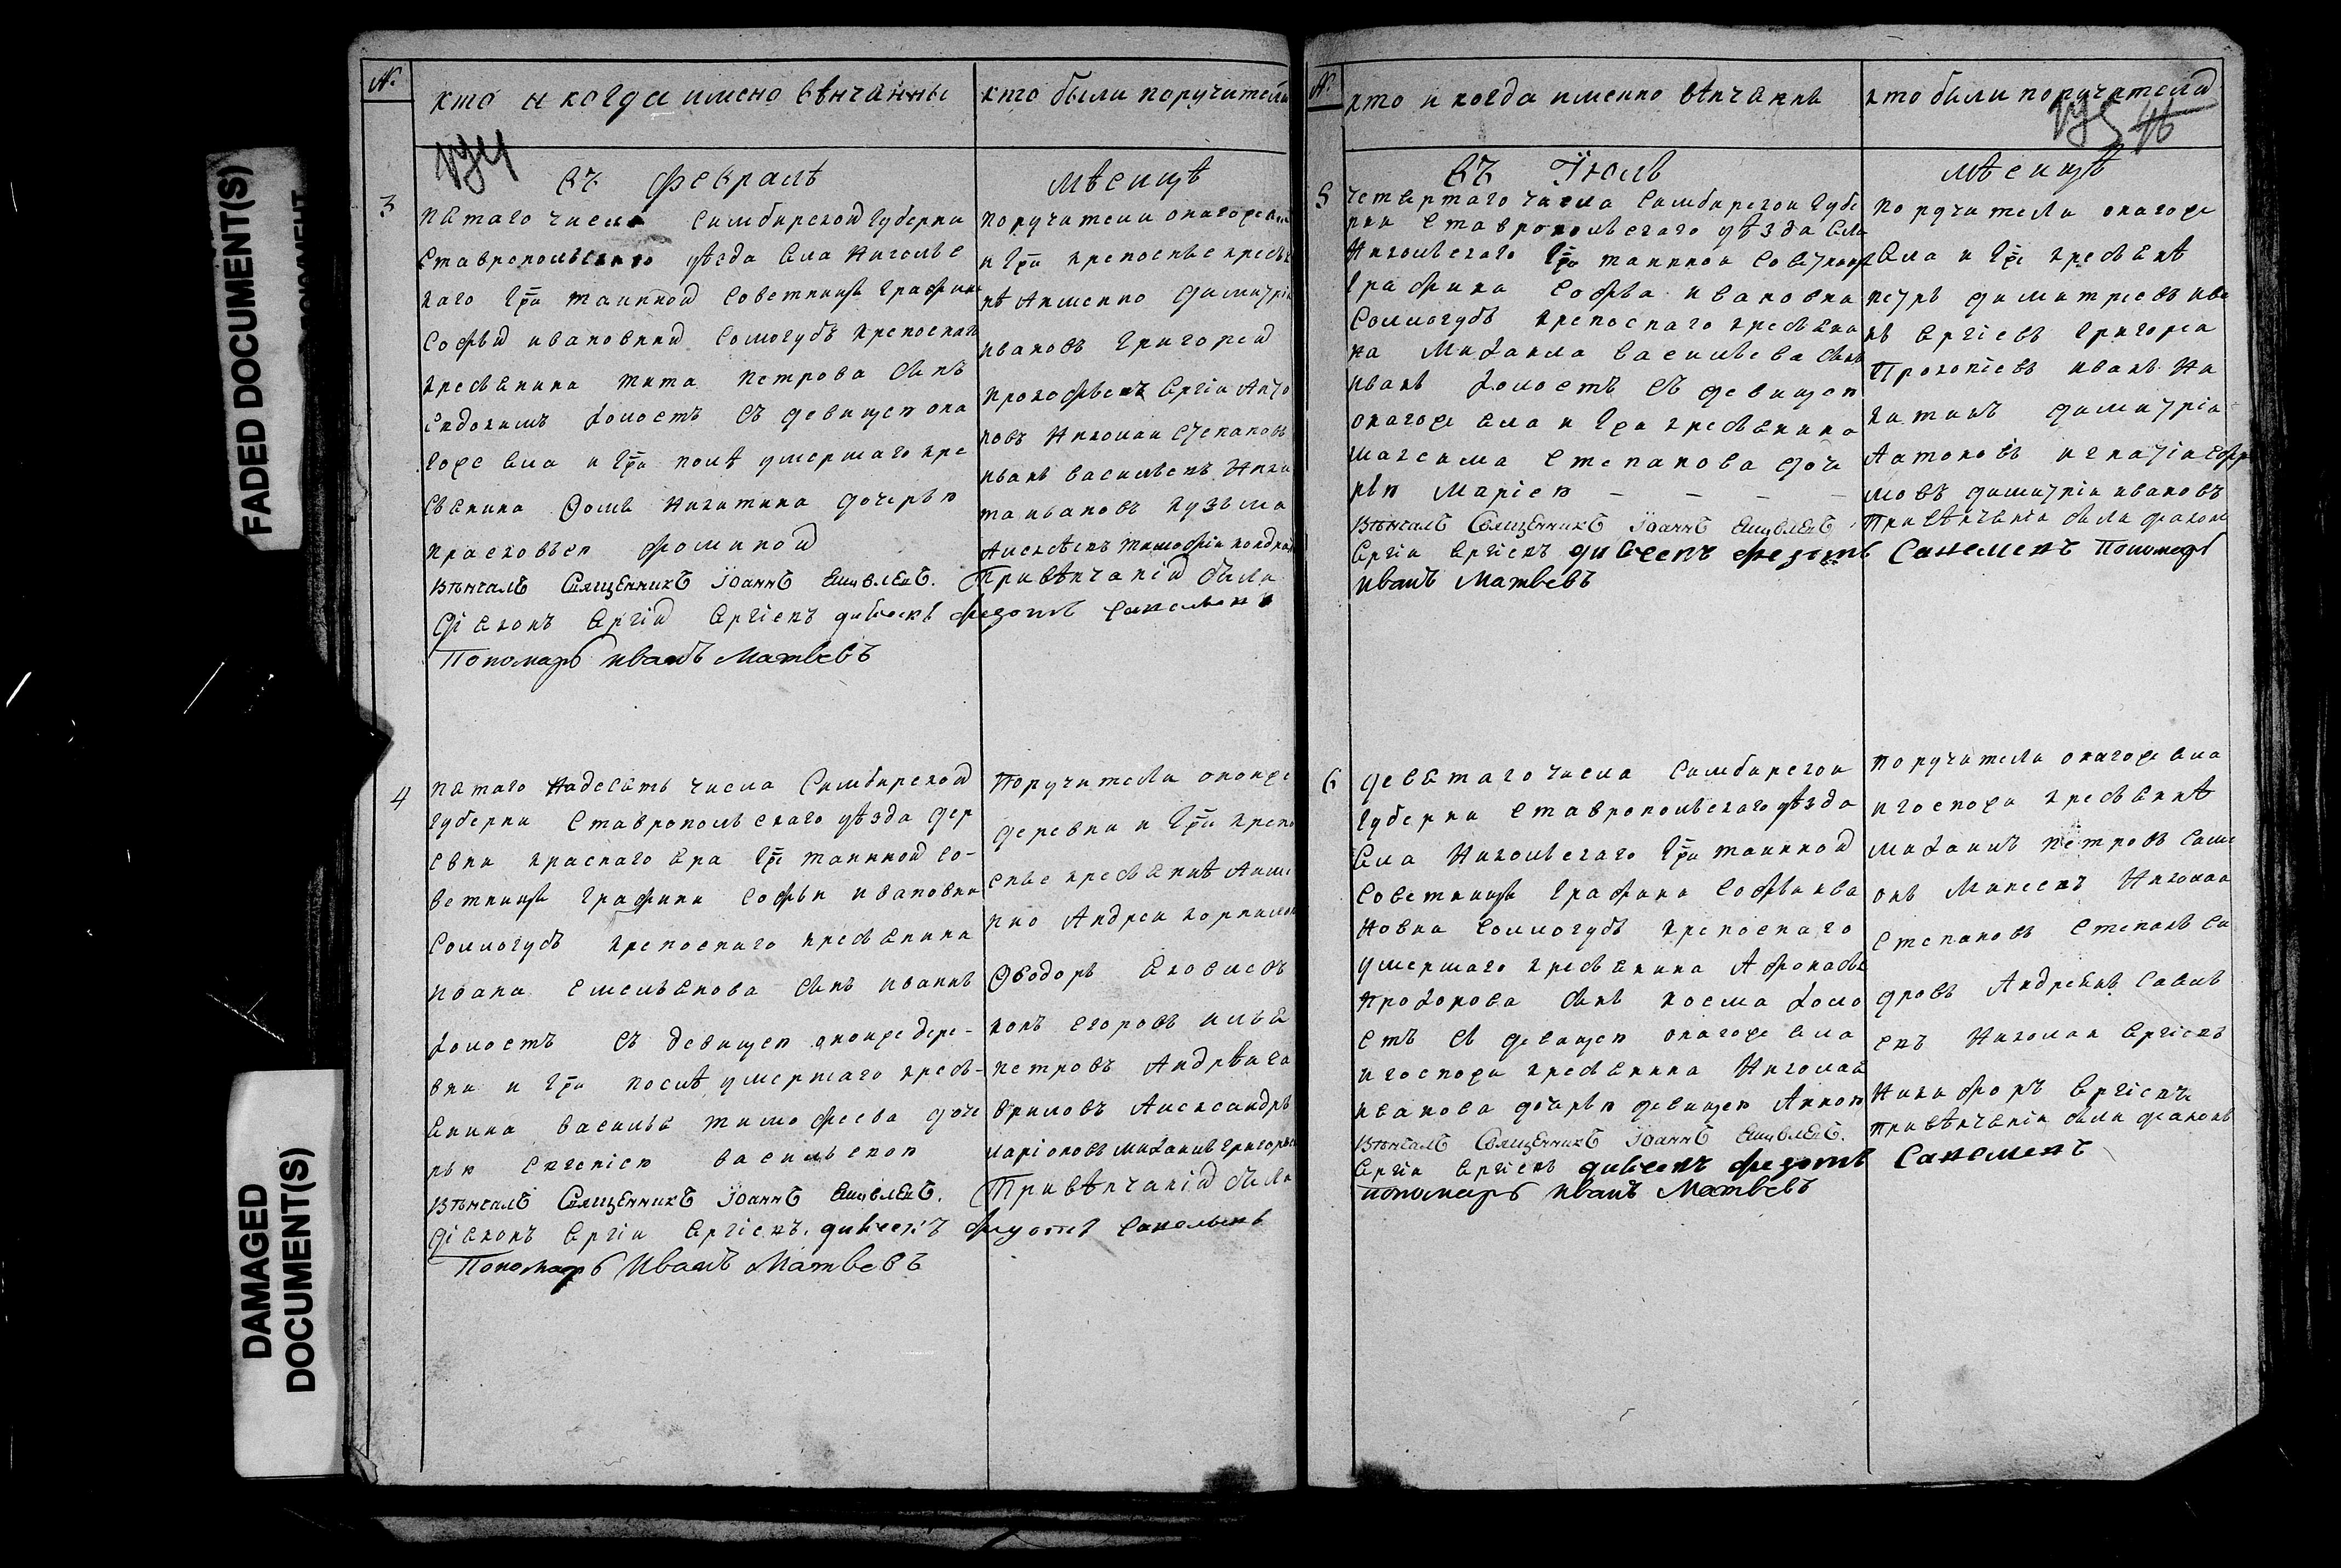 FADED DOCUMENT(S)
DAMAGED
DOCUMENT(S)
№
кто и когда имено вѣнчанны
кто были поручители
въ февралѣ
мѣсяцѣ
3
пятаго числа Симбирской Губерни
Ставропольскаго уѣзда села Николье
каго Гжи таинной советницы Графини
Софьи ивановнии Соллогубъ крепоснаго
кресьянина тита петрова сынъ
Евдокимъ холостъ съ девицею она
горе села и Гжи послѣ умершаго кре
сьянина Фомы никитина дочерью
прасковьею фоминой
Вѣнчалъ Священникъ Іоаннъ
Діяконъ Сергій Сергіевъ дьячекъ Федотъ
Пономарь иванъ Матвеевъ
поручители онагоре села
и Гжи крепосные кресья
нѣ Аименно Димитріи
ивановъ Григореи
прокофьевъ Сергіи Анто
новъ Николаи Степановъ
иванъ васильевъ Ники
та ивановъ кузьма
Алексѣевъ тимофіи кондра
При вѣнчаніи были
4
пятаго Надесять числа Симбирской
Губерни Ставропольскаго уѣзда дер
евни краснаго яра Гжи таинной со-
ветницы Графини Софьи ивановны
Соллогубъ крепоснаго кресьянина
иоана емельянова сынъ иваннъ
холостъ съ девицею оноиже дере-
вни и Гжи послѣ умершаго кресь-
янина василья тимофеева доче
рью Евгеніею васильевою
Вѣнчалъ Священникъ Іоаннъ
Діяконъ Сергіи Сергіевъ дьячекъ Федотъ
Пономарь Иванъ Матвеевъ
Поручители оноиже
деревни и Гжи крепо
сные кресьянѣ Аиме
нно Андреи корнилов
Феодоръ яковлевъ
конъ егоровъ илья
петровъ Андрѣи га
вриловъ Александръ
ларіоновъ михаилъ Григорьев
При вѣнчаніи были
№
кто и когда именно вѣнчаннъ
кто были поручители
46
въ Іюлѣ
мѣсяцѣ
5
четвертаго числа Симбирскои Губе
рнии Ставропольскаго уѣзда села
Никольскаго Гжи таиннои советницы
Графина Софья ивановна
Соллогубъ крепоснаго кресьяни
на Михаила васильева сынъ
иванъ холостъ съ девицею
онагоре села и Гжи кресьянина
максима Степанова доче
рью Маріею — — — —
Вѣнчалъ Священникъ Іоаннъ
Сергіи Сергіевъ дьячекъ Федотъ
иванъ Матвеевъ
Поручители онагоре
села и Гже кресьянѣ
петръ димитріевъ ива
нъ Сергіевъ Григореи
Прокопіевъ иванъ Ни
китинъ димитріи
Антоновъ игнатіи Ефре
мовъ димитріи ивановъ
При вѣнчаніи были диаконъ
Пономарь
6
девятаго числа Симбирскои
Губерни Ставропольскаго уѣзда
села Никольскаго Гжи таинной
Советницы Графина Софья ива
новна Соллогубъ крепоснаго
умершаго кресьянина Афонасья
прохорова сынъ косма холо
стъ съ девицею онагоре села
и господи кресьянина Николая
иванова дочерью девицею Анною
Вѣнчалъ Священникъ Іоаннъ
Сергіи Сергіевъ дьячекъ Федотъ
пономарь иванъ Матвеевъ
Поручители онагоре села
и господи кресьянѣ
михаилъ петровъ Симе
онъ Николаи
Степановъ Степанъ
дровъ Андреянъ Савель
евъ Николаи Сергіевъ
Никифоръ Сергіевъ
При вѣнчаніи были диаконъ